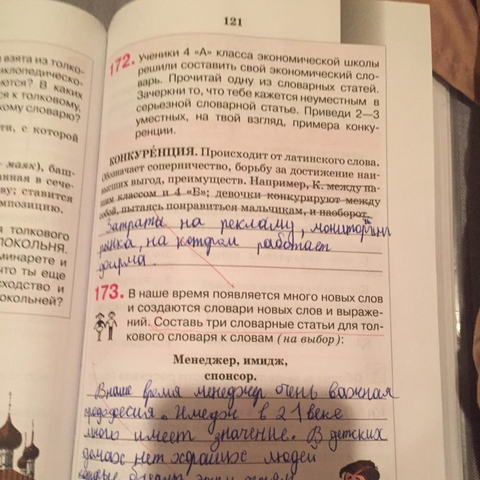 121
взята из толко-
клопедическо-
аются? В каких
ся к толковому,
кому словарю?
ти, с которой
маяк), баш-
анная в сече-
ву; ставится
мпозицию.
я толкового
ОКОЛЬНЯ.
минарете и
что ты еще
сходство и
окольней?
172. Ученики 4 «А» класса экономической школы
решили составить свой экономический сло-
варь. Прочитай одну из словарных статей.
Зачеркни то, что тебе кажется неуместным в
серьезной словарной статье. Приведи 2—3
уместных, на твой взгляд, примера конку-
ренции.
КОНКУРЕ́НЦИЯ. Происходит от латинского слова.
Обозначает соперничество, борьбу за достижение наи-
высших выгод, преимуществ. Например, К. между на-
шим классом и 4 «Б»; девочки конкурируют между
собой, пытаясь понравиться мальчикам, и наоборот.
Затраты на рекламу, мониторинг
рынка, на котором работает
фирма.
173. В наше время появляется много новых слов
и создаются словари новых слов и выраже-
ний. Составь три словарные статьи для тол-
кового словаря к словам (на выбор):
Менеджер, имидж,
спонсор.
В наше время менеджер очень важная
професия. Имедж в 21 веке
много имеет значение. В детских
домах нет хороших людей